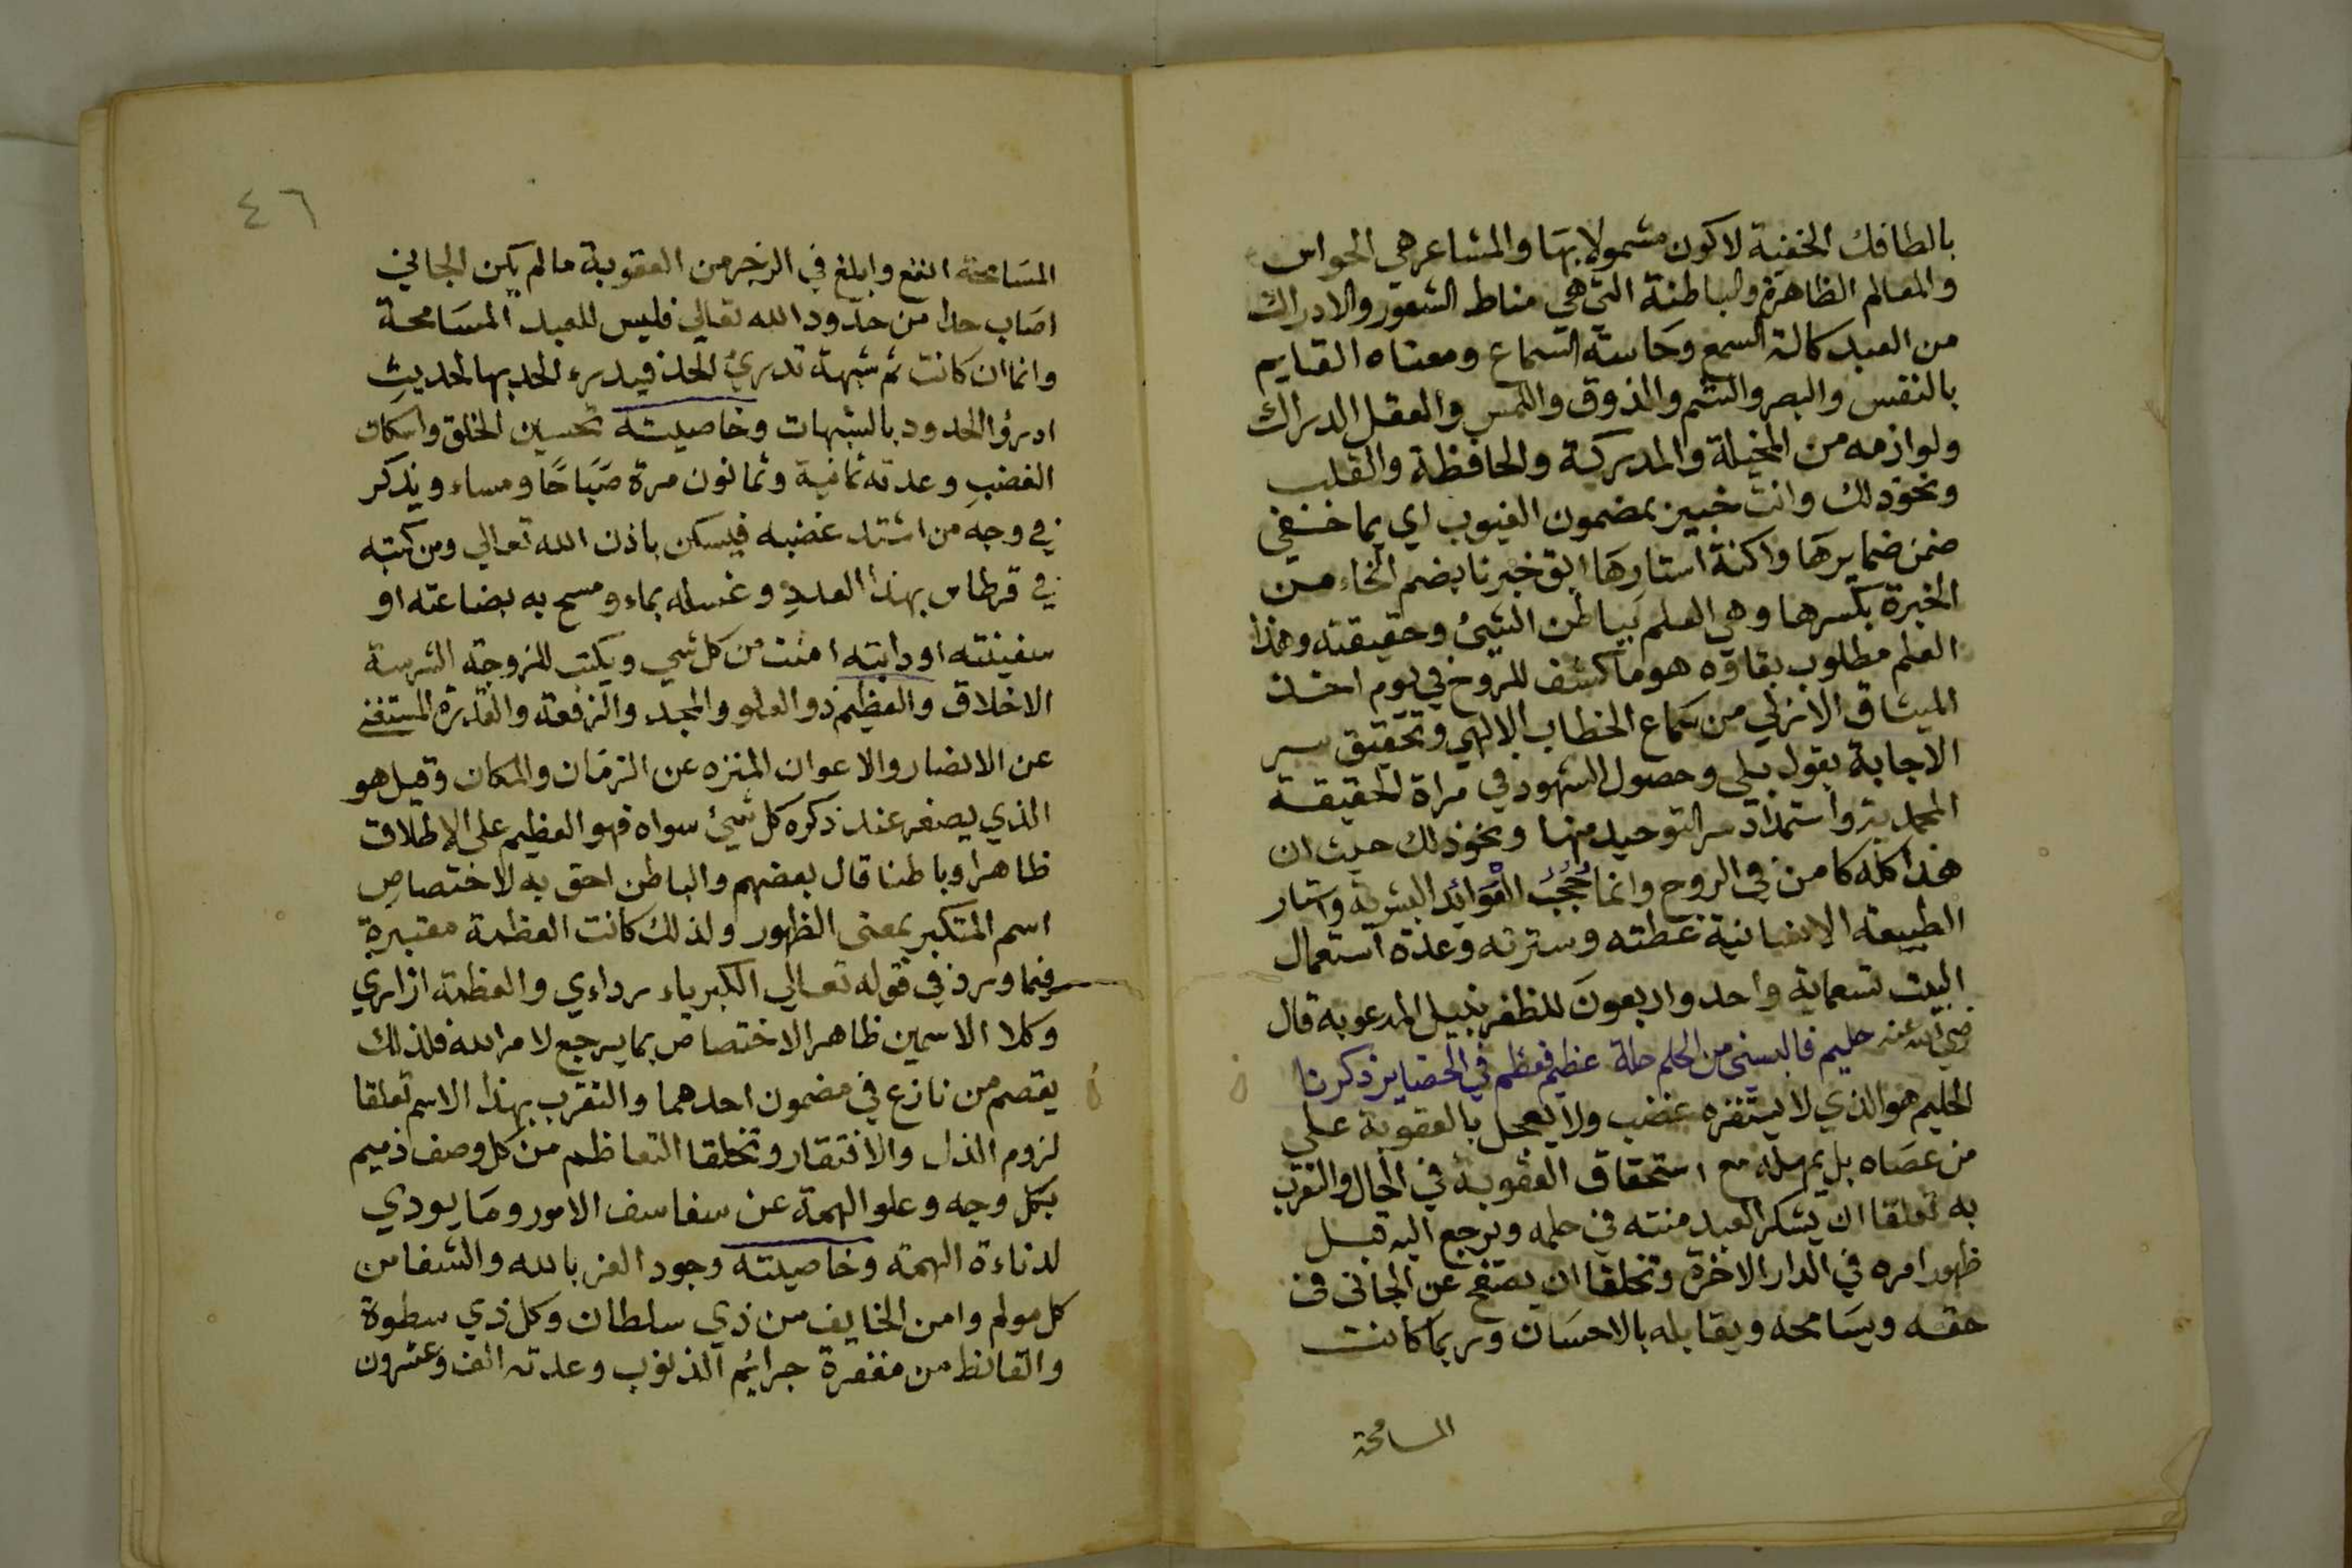 بالطافك الخفية لاكون مشمولا بها والمشاعر هي الحواس
والمعالم الظاهرة والباطنة التي هي مناط الشعور والادراك
من العبد كالة السمع وحاسة السماع ومعناه القايم
بالنفس والبصر والشم والذوق واللمس والعقل الدراك
ولوازمه من المخيلة والمدركة والحافظة والقلب
ونحو ذلك وانت خبير بمضمون الغيوب اي بما خفي
ضمن ضمايرها واكنة استارها ابق خبرنا بضم الخاء من
الخبرة بكسرها وهي العلم بباطن الشئ وحقيقته وهذا
العلم مطلوب بقاؤه هو ما كشف للروح في يوم اخذ
الميثاق الازلي من سماع الخطاب الالهي وتحقيق سر
الاجابة بقول بلى وحصول الشهود في مراة الحقيقة
المحمدية واستمداد سر التوحيد منها ونحو ذلك حيث ان
هذا كله كامن في الروح وانما حجب العوائد البشرية واستار
الطبيعة الانسانية غطته وسترته وعدة استعمال
البيت تسعماية واحد واربعون للظفر بنيل المرعوبة قال
رضي الله عنه حليم فالبسني من الحلم حلة عظيم فعظم في الحضاير ذكرنا
الحليم هو الذي لا يستفزه غضب ولا يعجل بالعقوبة على
من عصاه بل يمهله مع استحقاق العقوبة في الحال والتقرب
به تعلقا ان يشكر العبد منته في حلمه ويرجع اليه قبل
ظهور امره في الدار الاخرة وتخلقا ان يصفح عن الجاني في
حقه ويسامحه ويقابله بالاحسان وربما كانت
المسامحة
٤٦
المسامحة انفع وابلغ في الزجر من العقوبة ما لم يكن الجاني
اصاب حدا من حدود الله تعالي فليس للعبد المسامحة
وانما ان كانت ثم شبهة تدرئ الحد فيدرء الحد بها لحديث
ادرؤا الحدود بالشبهات وخاصيته تحسين الخلق واسكان
الغضب وعدته ثمانية وثمانون مرة صباحا ومساء ويذكر
في وجه من اشتد غضبه فيسكن باذن الله تعالي ومن كتبه
في قرطاس بهذا العدد وغسله بماء ومسح به بضاعته او
سفينته او دابته امنت من كل شي ويكتب للزوجة الشرسة
الاخلاق والعظيم ذو العلو والمجد والرفعة والقدرة المستغني
عن الانصار والاعوان المنزه عن الزمان والمكان وقيل هو
الذي يصغر عند ذكره كل شئ سواه فهو العظيم على الاطلاق
ظاهرا وباطنا قال بعضهم والباطن احق به لاختصاص
اسم المتكبر بمعنى الظهور ولذلك كانت العظمة معتبرة
فيما ورد في قوله تعالي الكبرياء رداءي والعظمة ازاري
وكلا الاسمين ظاهر الاختصاص بما يرجع لامر الله فلذلك
يقصم من نازع في مضمون احدهما والتقرب بهذا الاسم تعلقا
لزوم الذل والافتقار وتخلقا التعاظم من كل وصف ذميم
بكل وجه وعلو الهمة عن سفاسف الامور وما يودي
لدناءة الهمة وخاصيته وجود العز بالله والشفا من
كل مولم وامن الخايف من ذي سلطان وكل ذي سطوة
والقانط من مغفرة جرائم الذنوب وعدته الف وعشرون